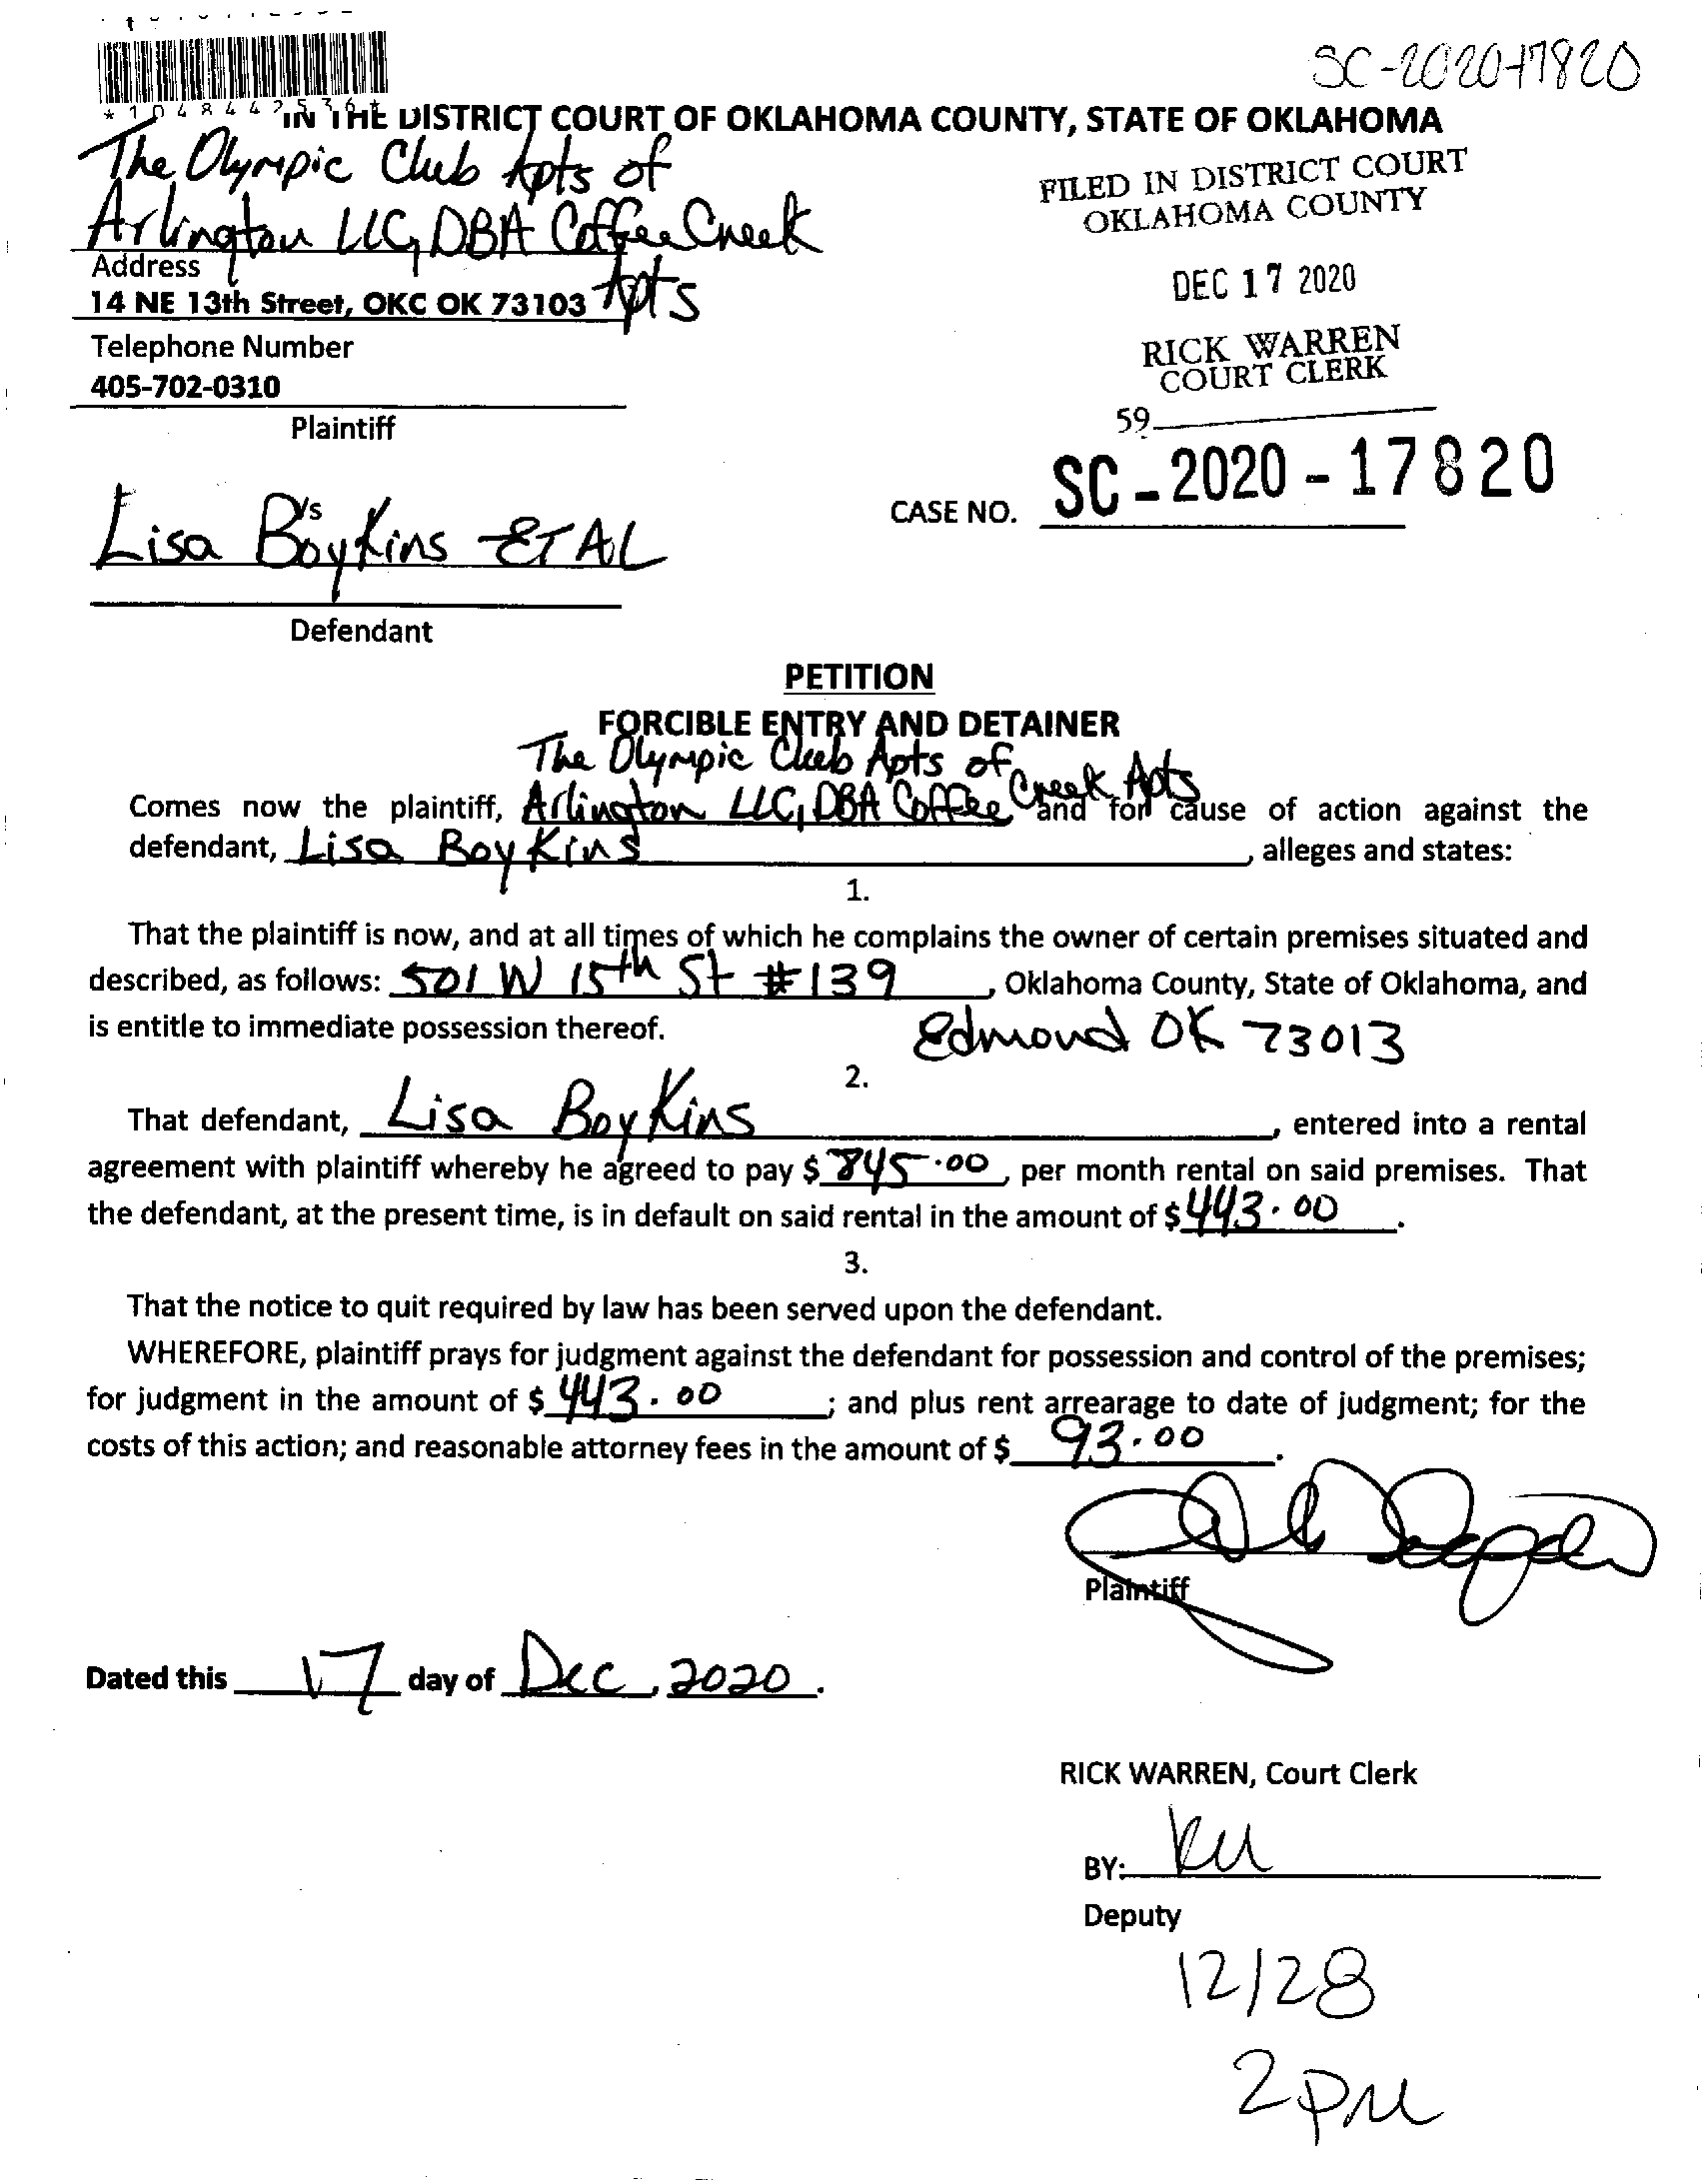 SC-2020-17820
*1048442536*
IN THE DISTRICT COURT OF OKLAHOMA COUNTY, STATE OF OKLAHOMA
The Olympic Club Apts of
Arlington LLC, DBA Coffee Creek
Apts
Address
14 NE 13th Street, OKC OK 73103
Telephone Number
405-702-0310
Plaintiff
FILED IN DISTRICT COURT
OKLAHOMA COUNTY
DEC 17 2020
RICK WARREN
COURT CLERK
59
CASE NO. SC-2020-17820
Vs
Lisa Boykins ET AL
Defendant
PETITION
FORCIBLE ENTRY AND DETAINER
The Olympic Club Apts of
Comes now the plaintiff, Arlington LLC, DBA Coffee Creek Apts and for cause of action against the
defendant, Lisa Boykins, alleges and states:
1.
That the plaintiff is now, and at all times of which he complains the owner of certain premises situated and
described, as follows: 501 W 15th St #139, Oklahoma County, State of Oklahoma, and
is entitle to immediate possession thereof. Edmond OK 73013
2.
That defendant, Lisa Boykins, entered into a rental
agreement with plaintiff whereby he agreed to pay $845.00, per month rental on said premises. That
the defendant, at the present time, is in default on said rental in the amount of $443.00.
3.
That the notice to quit required by law has been served upon the defendant.
WHEREFORE, plaintiff prays for judgment against the defendant for possession and control of the premises;
for judgment in the amount of $443.00; and plus rent arrearage to date of judgment; for the
costs of this action; and reasonable attorney fees in the amount of $93.00.
Plaintiff
Dated this 17 day of Dec, 2020.
RICK WARREN, Court Clerk
BY:
Deputy
12/28
2pm